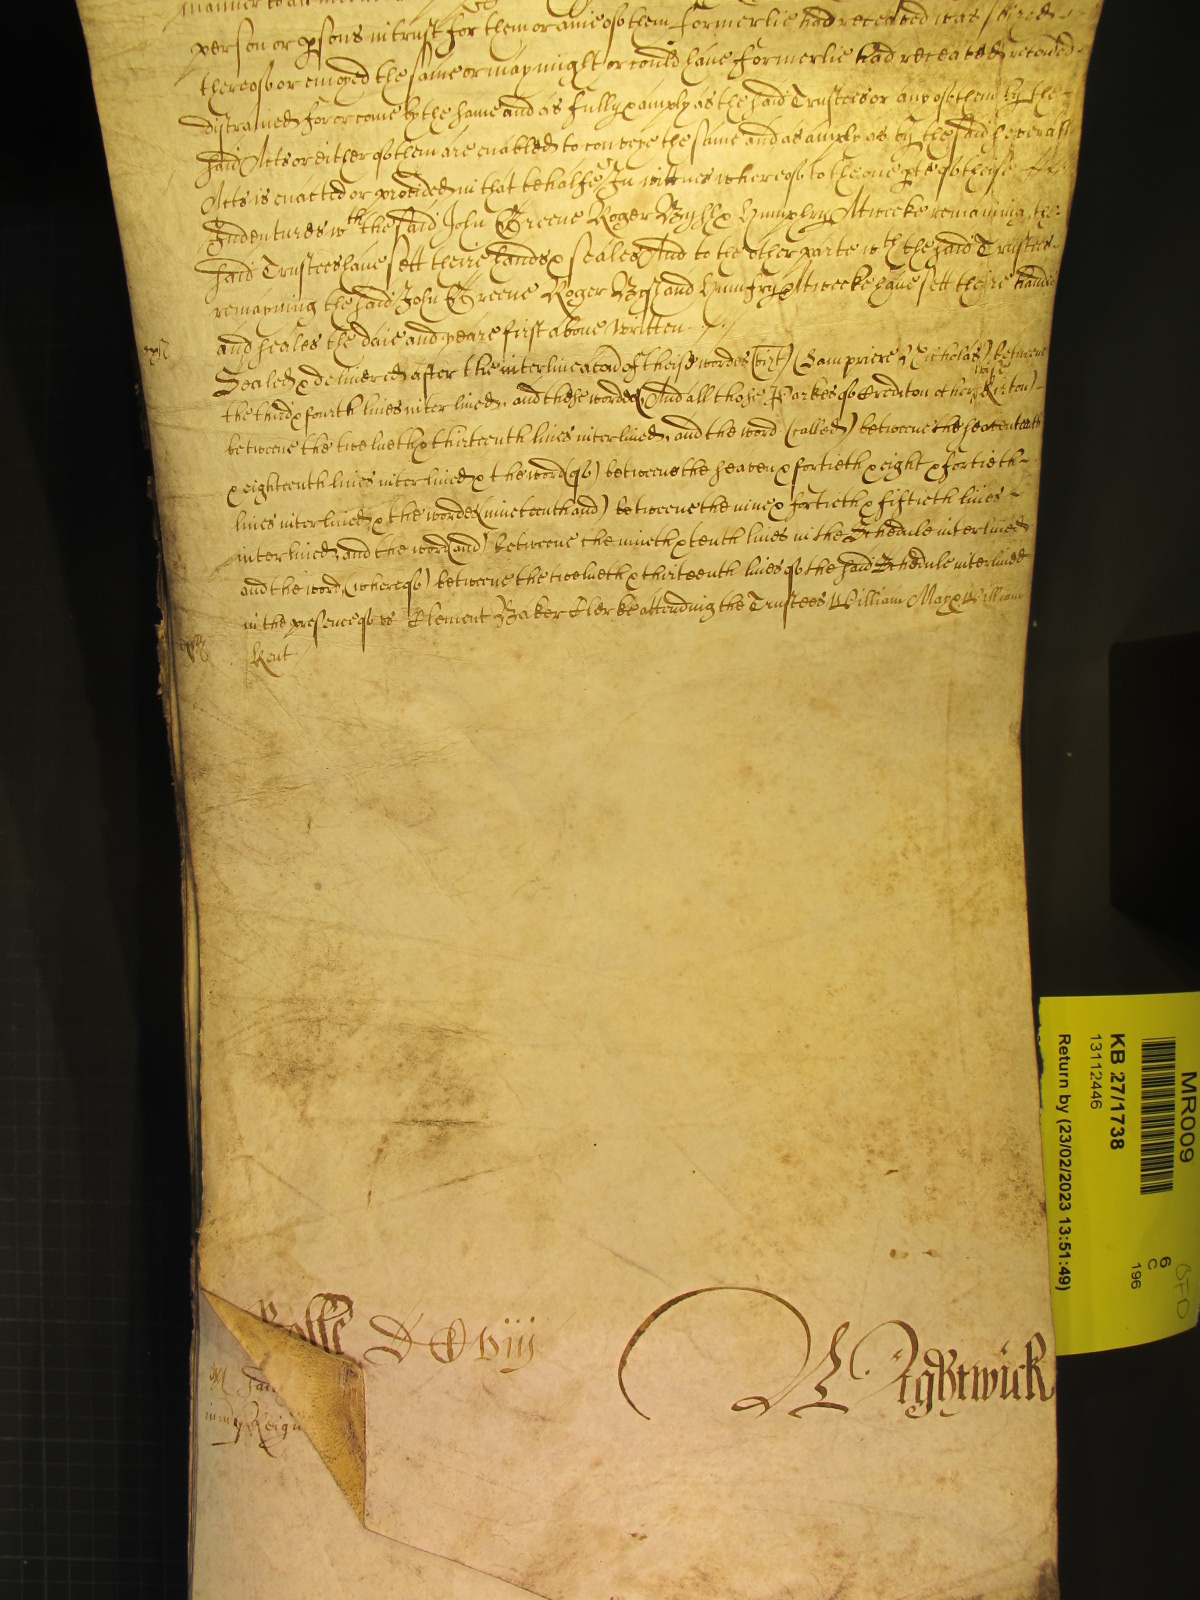 manner to all
person or psons in trust for them or anie of them formerlie had received was seized
thereof or enioyed the same or may might or could have formerlie had receaved
distrained for or come by the same and as fully & amply as the said Trustees or any of them by the
said Acts or either of them are enabled to convaye the same and as ample as by the said severall
Acts is enacted or provided in that behalfe In witnes whereof to the one pte of theise
Indentures wth the said John Greene Roger & Humphry Atweeke remaining the
said Trustees have sett theire hands & seales And to the other parte wth the said Trustees
remayning the said John Greene Roger and Humfry Atweeke have sett theire hands
and seales the daie and yeare first above written
Sealed & delivered after the interlineacon of theise wordes (vizt) (Nicholas) betweene
the third & fourth lines interlined, and these wordes (And all those Parkes of Crediton otherwise Kirton)
betweene the twelueth & thirteenth lines interlined, and the word (called) betweene the seaventeenth
& eighteenth lines interlined & the word (of) betweene the seaven & fortieth & eight & fortieth
lines interlined & the wordes (nineteenth and) betweene the nine & fortieth & fiftieth lines
interlined, and the word (and) betweene the nineth & tenth lines in the Schedule interlined
and the word (whereof) betweene the twelueth & thirteenth lines of the said Schedule interlined
in the presence of us Clement Baker Clerke attending the Trustees William May & William
Kent
Rolle D O viij
Wightwick
MR009
KB 27/1738
13112446
Return by (23/02/2023 13:51:49)
6
C
196